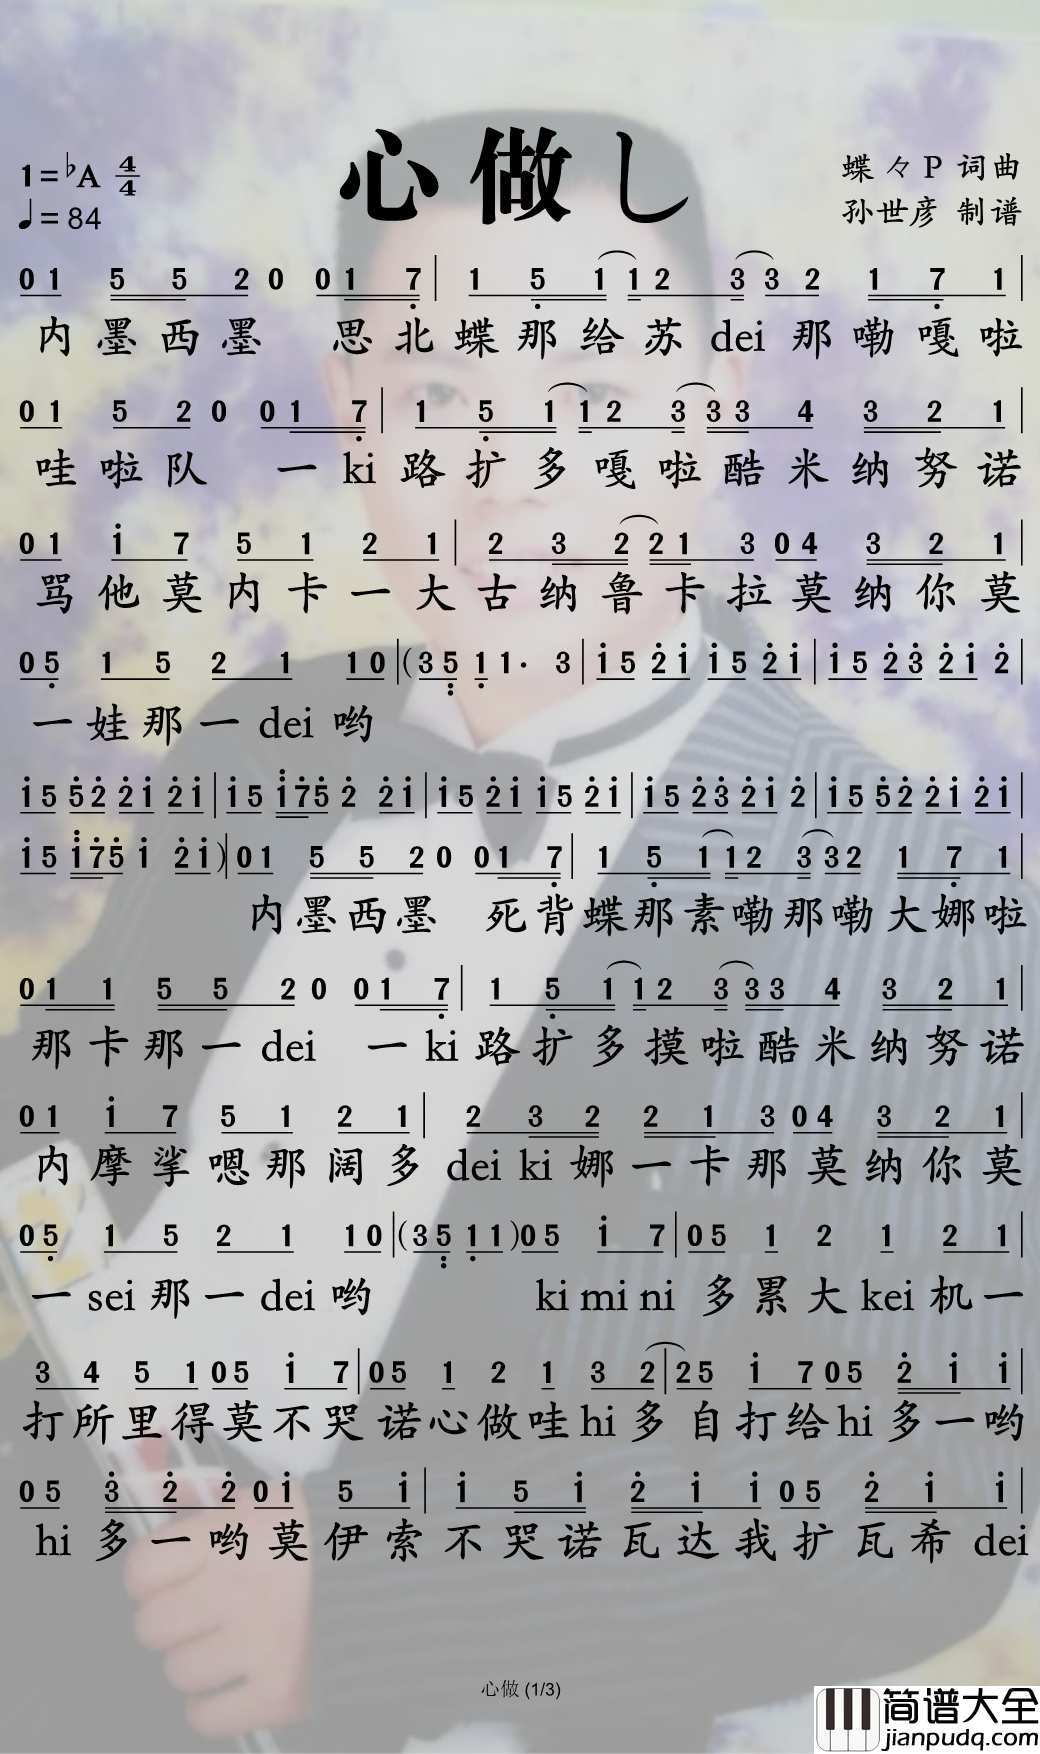 心做し
1=♭A 4/4
♩=84
蝶々P 词曲
孙世彦 制谱
0 1 5 5 2 0 0 1 7 | 1 5 1 1 2 3 3 2 1 7 1 |
内墨西墨 思北蝶那给苏dei那嘞嘎啦
0 1 5 2 0 0 1 7 | 1 5 1 1 2 3 3 3 4 3 2 1 |
哇啦队 一ki路扩多嘎啦酷米纳努诺
0 1 i 7 5 1 2 1 | 2 3 2 2 1 3 0 4 3 2 1 |
骂他莫内卡一大古纳鲁卡拉莫纳你莫
0 5 1 5 2 1 1 0 | (3 5 1 1· 3 | i 5 2 i i 5 2 i | i 5 2 3 2 i 2 |
一娃那一dei哟
i 5 5 2 2 i 2 i | i 5 i 7 5 2 2 i | i 5 2 i i 5 2 i | i 5 2 3 2 i 2 | i 5 5 2 2 i 2 i |
i 5 i 7 5 i 2 i) | 0 1 5 5 2 0 0 1 7 | 1 5 1 1 2 3 3 2 1 7 1 |
内墨西墨 死背蝶那素嘞那嘞大娜啦
0 1 1 5 5 2 0 0 1 7 | 1 5 1 1 2 3 3 3 4 3 2 1 |
那卡那一dei 一ki路扩多摸啦酷米纳努诺
0 1 i 7 5 1 2 1 | 2 3 2 2 1 3 0 4 3 2 1 |
内摩挲嗯那阔多dei ki娜一卡那莫纳你莫
0 5 1 5 2 1 1 0 | (3 5 1 1) 0 5 i 7 | 0 5 1 2 1 2 1 |
一sei那一dei哟 ki mi ni 多累大kei机一
3 4 5 1 0 5 i 7 | 0 5 1 2 1 3 2 | 2 5 i 7 0 5 2 i i |
打所里得莫不哭诺心做哇hi多自打给hi多一哟
0 5 3 2 2 0 i 5 i | i 5 i 2 i i 0 5 2 i i |
hi多一哟莫伊索不哭诺瓦达我扩瓦希dei
心做 (1/3)
简谱大全
jianpudq.com